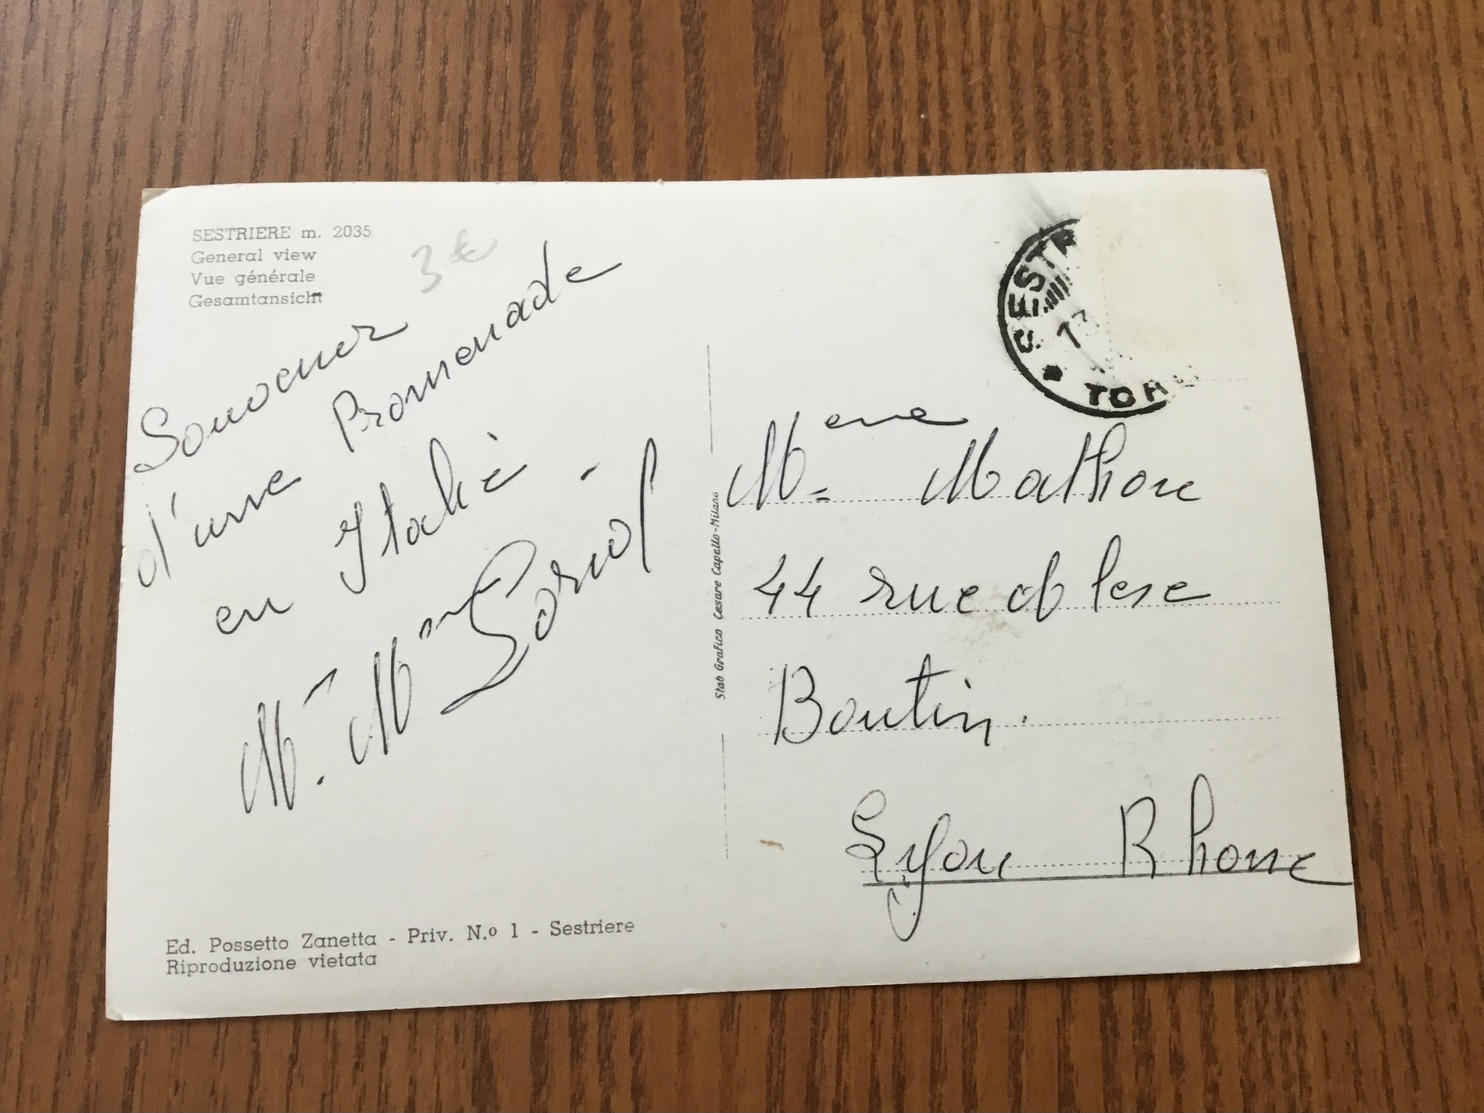 SESTRIERE m. 2035
General view
Vue générale
Gesamtansicht
3€
Souvenir
d'une Promenade
en Italie
Mr. Mme Loriol
Stab Grafico Cesare Capello-Milano
SESTR
13
TOR
Mme Mathon
44 rue
Boutin.
Lyon Rhone
Ed. Possetto Zanetta - Priv. N.º 1 - Sestriere
Riproduzione vietata